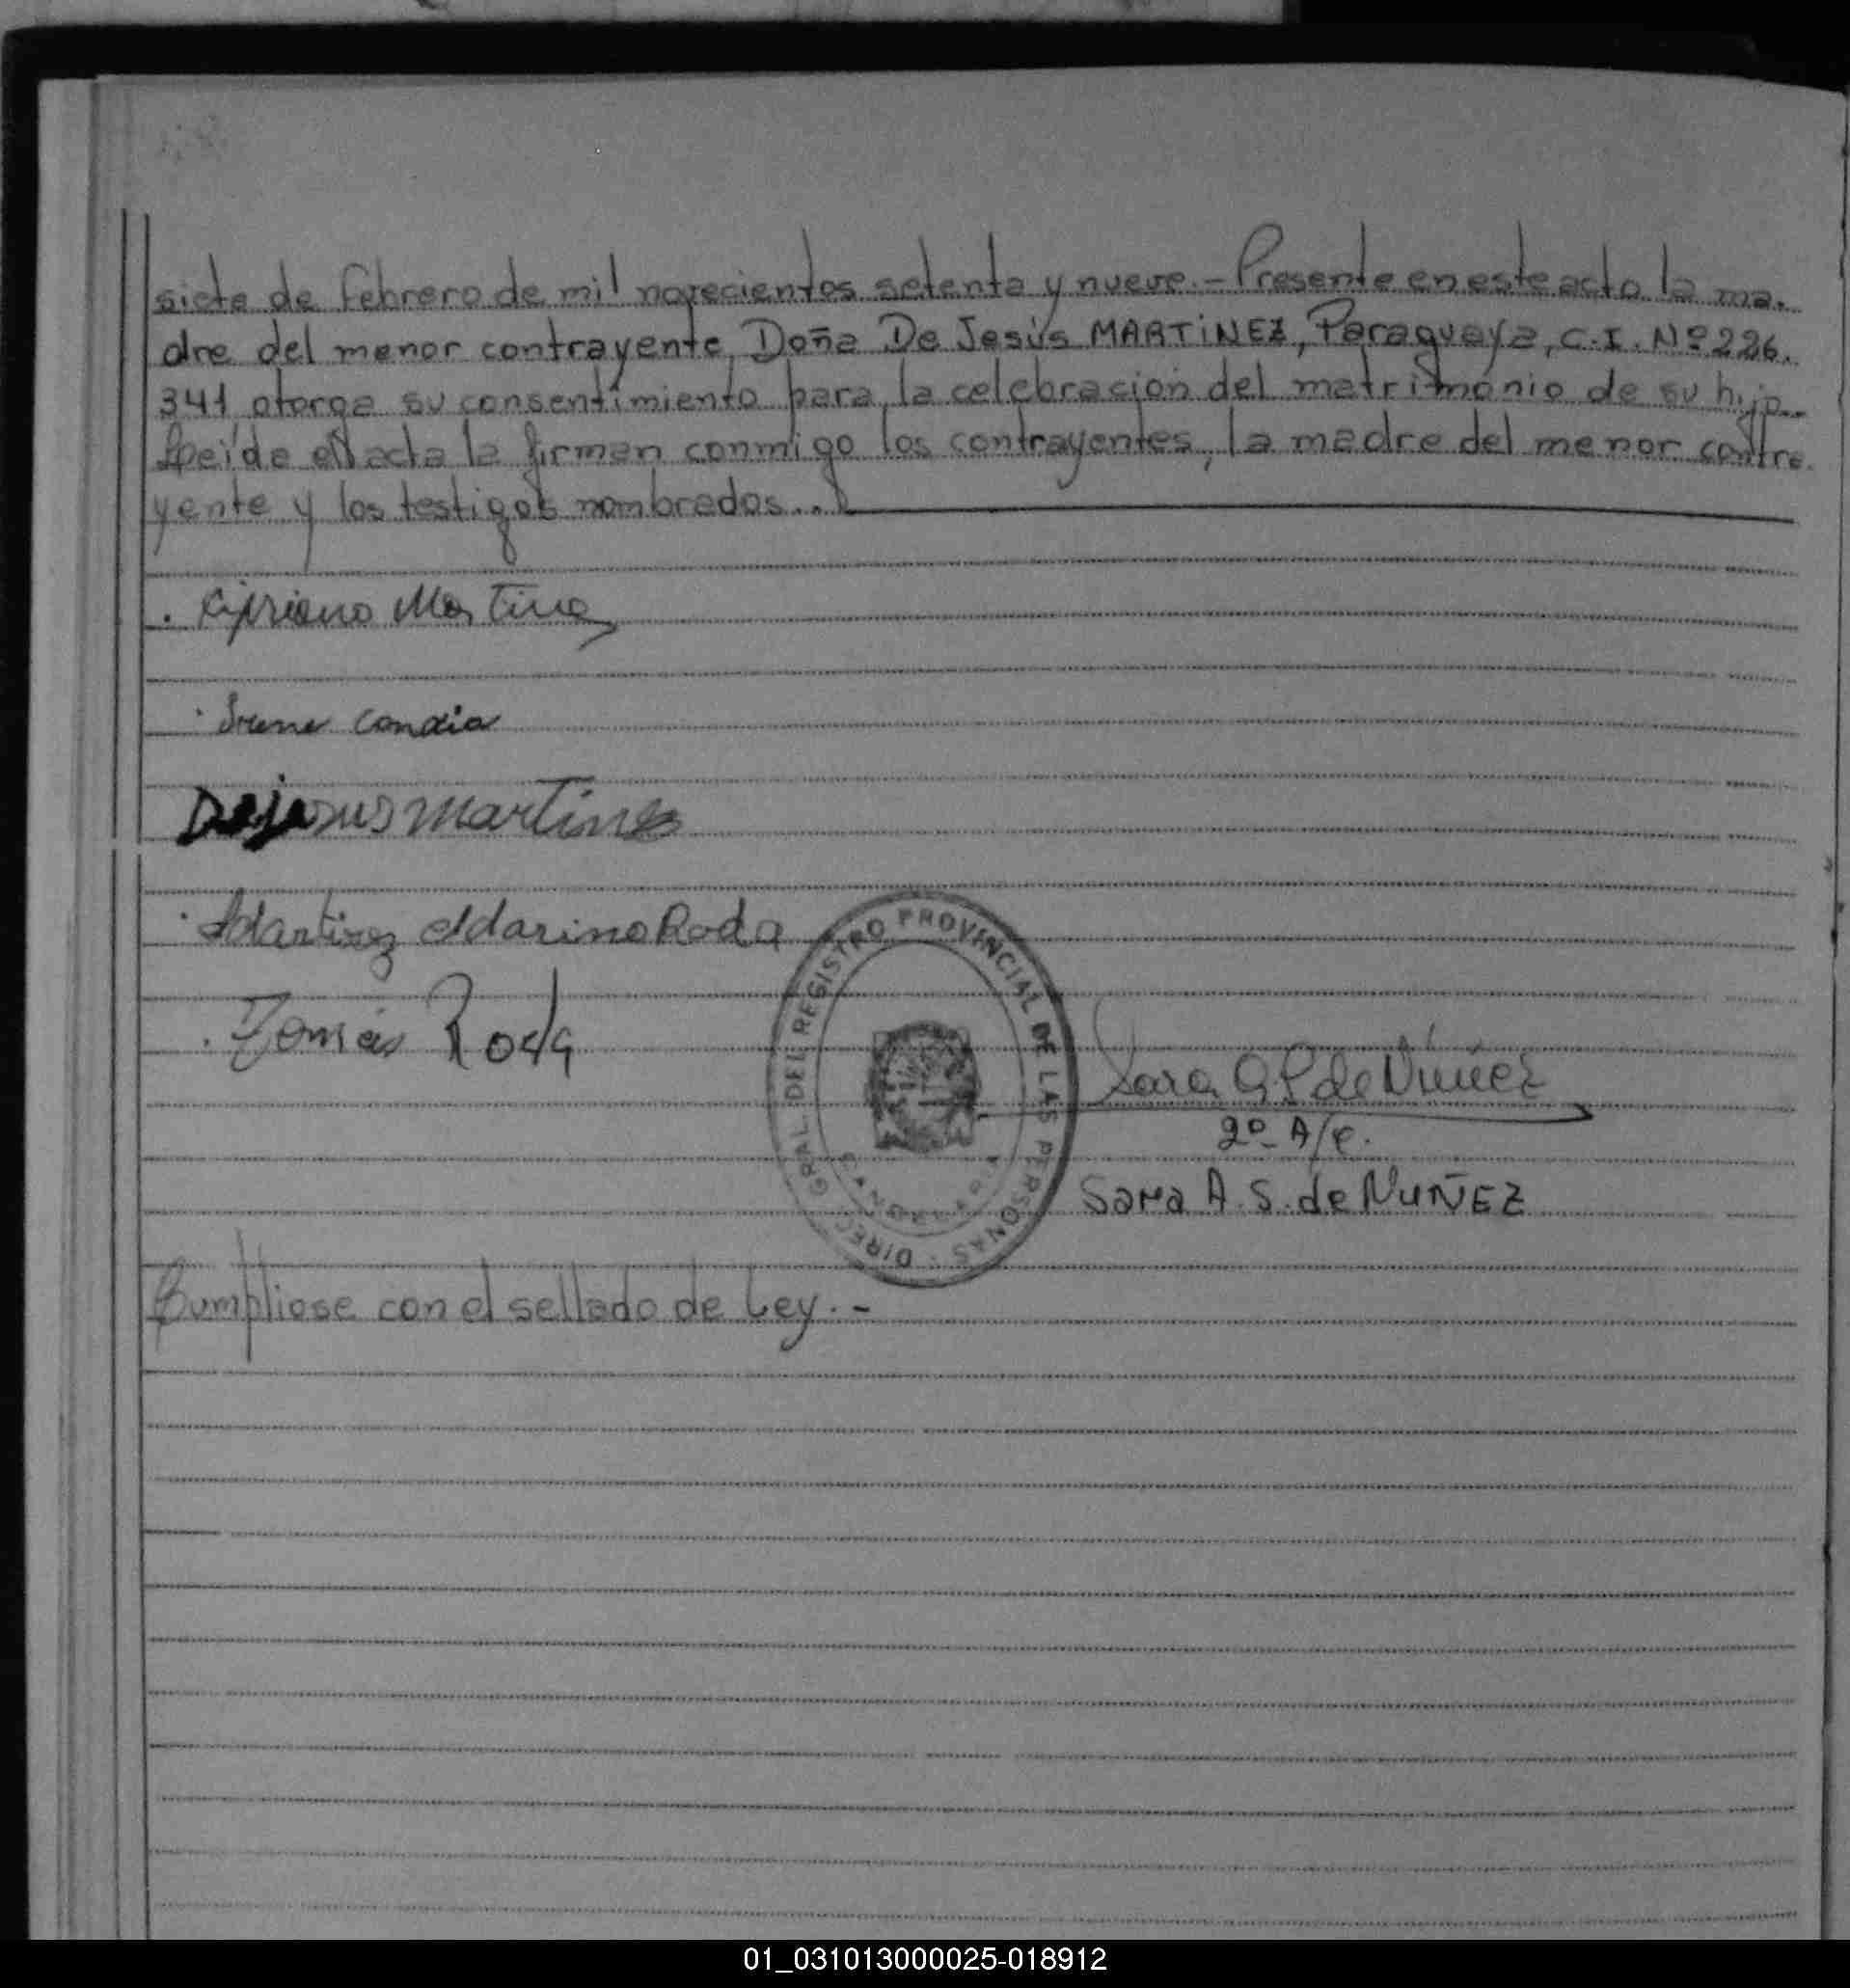 siete de febrero de mil novecientos setenta y nueve.- Presente en este acto la ma.
dre del menor contrayente, Doña De Jesús MARTiNEZ, Paraguaya, C.I. Nº 226.
341 otorga su consentimiento para la celebración del matrimonio de su hijo..
Leída el acta la firman conmigo los contrayentes, la madre del menor contra.
yente y los testigos nombrados...
Cipriano Martinez
Irene Candia
Dejesus Martinez
Martinez Marino Roda
Tomás Roda
DIREC. GRAL. DEL REGISTRO PROVINCIAL DE LAS PERSONAS
Sara de Núñez
2º A/c.
Sara A. S. de NUÑEZ
Cumpliose con el sellado de Ley.-
01_031013000025-018912